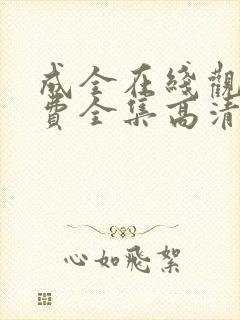 成全在綫觀
費全集高清
心如飛絮